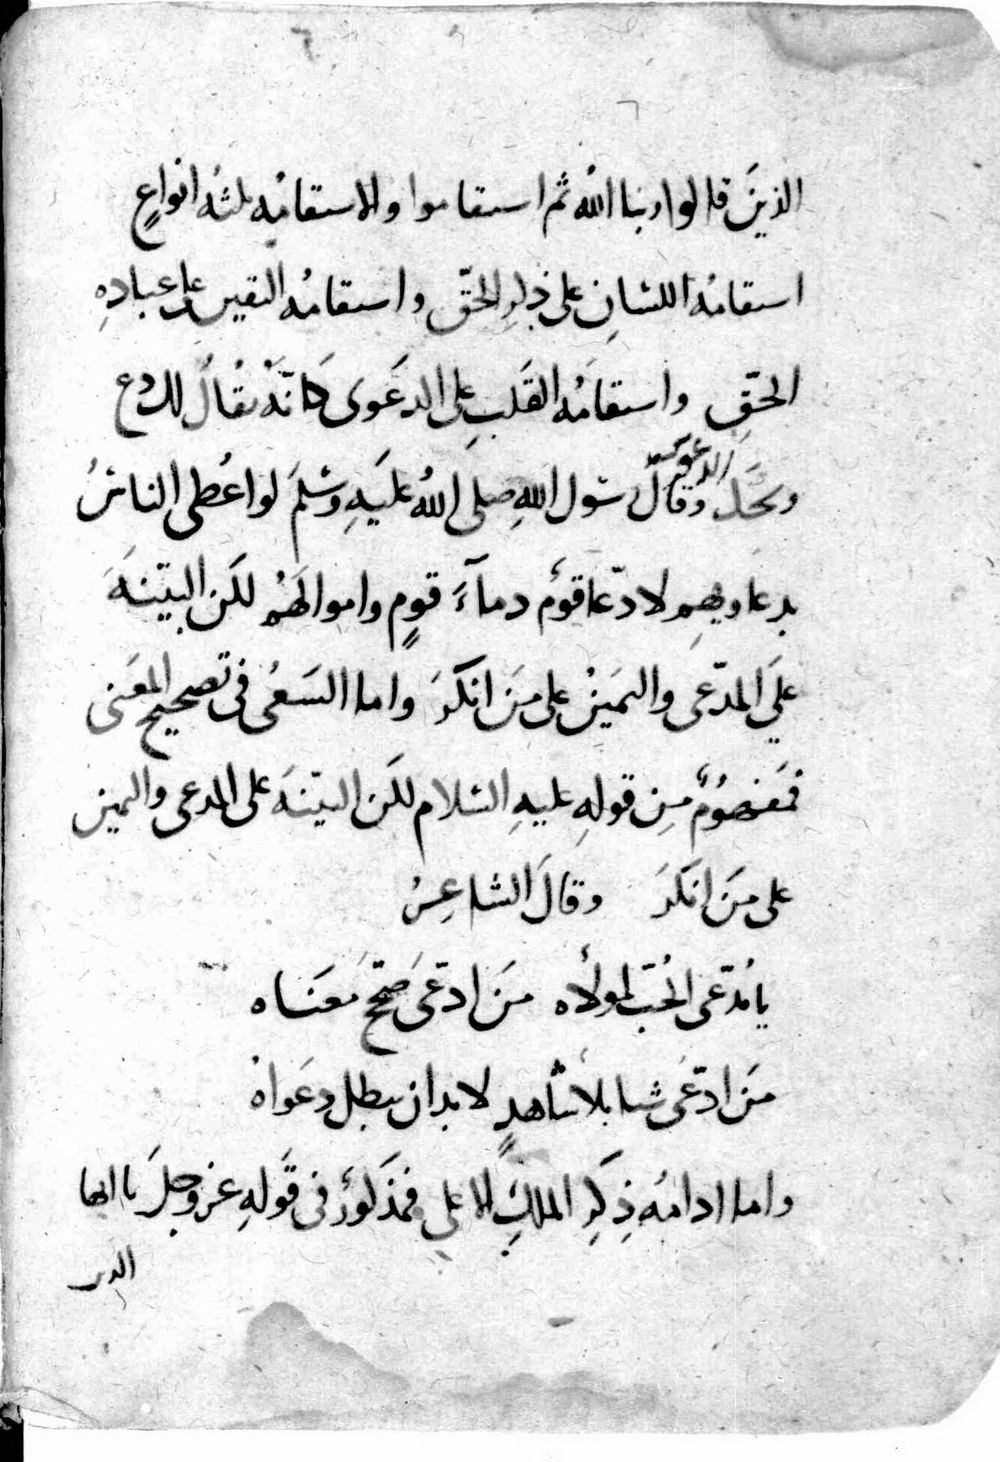 الذينَ قالوا ربنا الله ثم استقاموا والاستقامُه ثلثهُ انواعٍ
استقامُه اللسَانِ على ذِكرِ الحقّ واستقامهُ النفس على عبادهِ
الحقِّ واستقامُه القَلبِ على الدعَوى كانّهُ يقُالُ للمدع
الدعوى
وقالَ رسول اللهِ صلى اللهُ عليَهِ وسَلمَ لواعُطى الناسُ
بدعاويهِم لادّعا قومُ دماءَ قومٍ واموالَهُم لكن البيّنهَ
علَى المدّعى واليمَينُ على مَن انكرَ واما السَعُى فى تصحيح المعَنى
فمَفهوُمٌ مِن قولهِ عليهِ السَلام لكن البيّنهَ على المدعى واليمين
على مَن انكرَ وقالَ الشاعِرُ
يا مُدّعى الحُبّ لمولاُه مَن ادّعىَ صَحّحَ معَناه
مَن ادّعَى شيا بلا شاهدٍ لابد ان يبطل دعَواهُ
واما ادامُه ذِكرِ الملكِ الاعلى فمذكورٌ فى قَولهِ عز وجلَ يا ايها
الذين